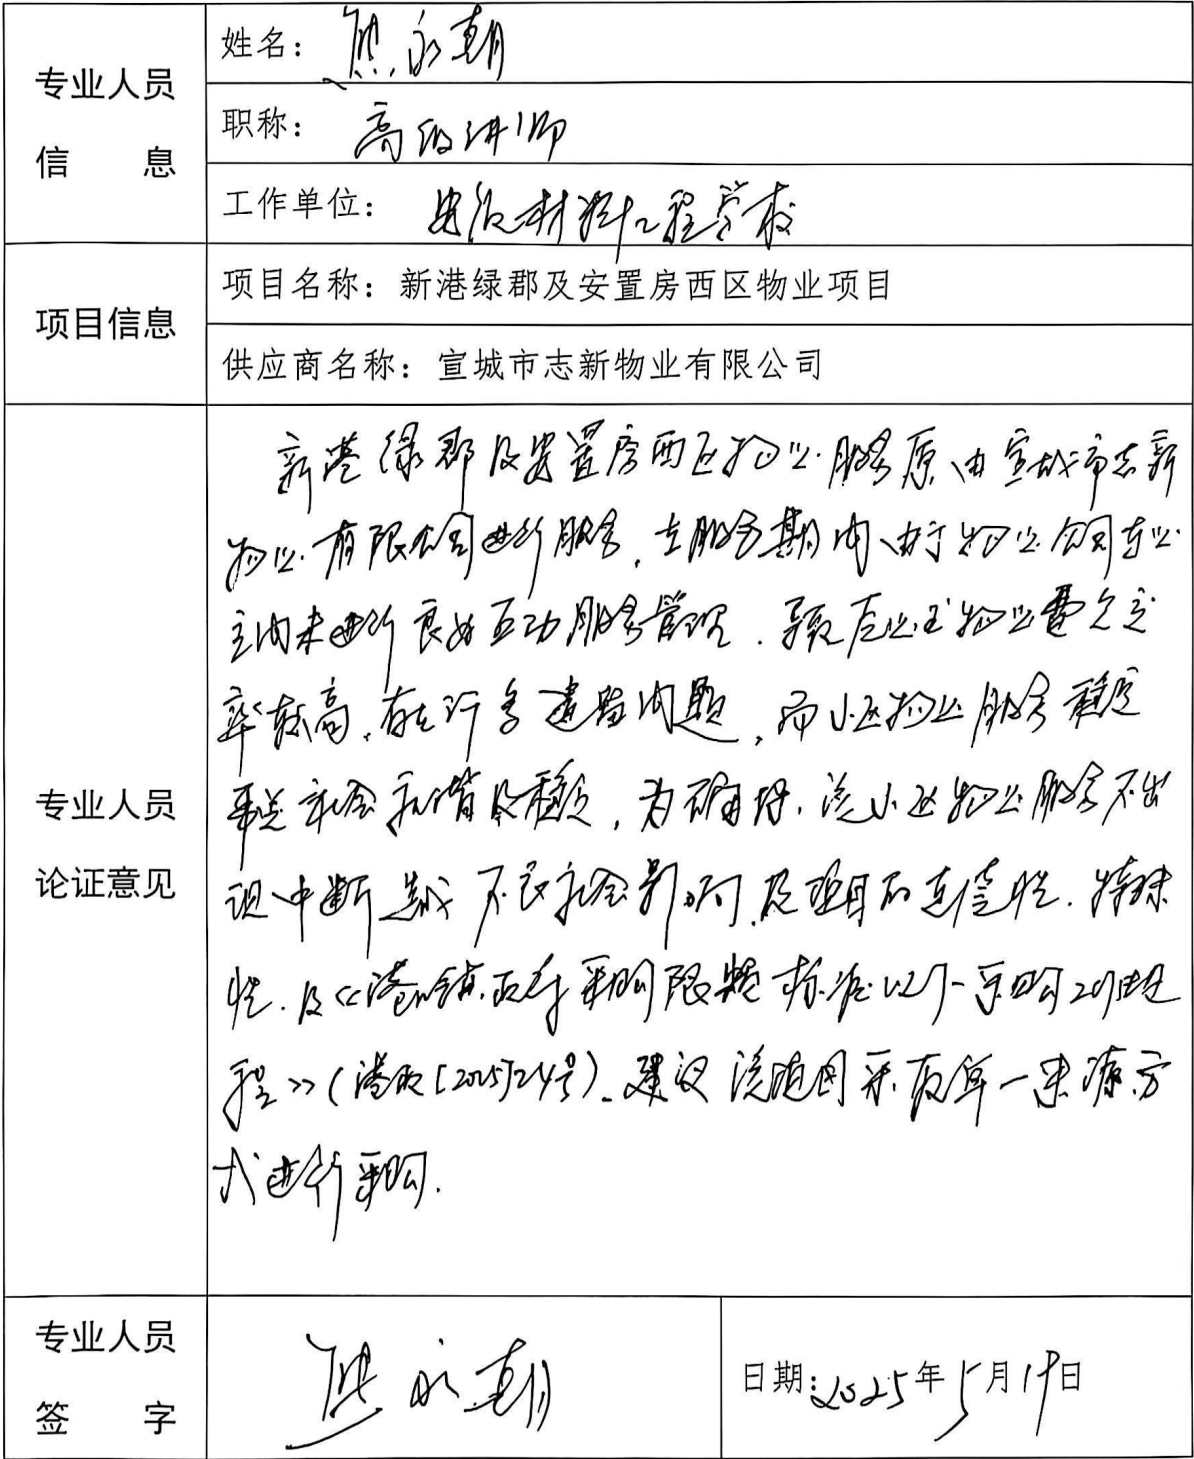 专业人员
信 息
姓名：熊永朝
职称：高级讲师
工作单位：安徽材料工程学校
项目信息
项目名称：新港绿郡及安置房西区物业项目
供应商名称：宣城市志新物业有限公司
专业人员
论证意见
新港绿郡及安置房西区物业服务原由宣城市志新
物业有限公司进行服务，在服务期内由于物业公司在业
主内未进行良好互动服务管理，导致后业主物业费欠交
率较高，存在许多遗留问题，而小区物业服务稳定
事关社会和谐及稳定，为确保该小区物业服务不出
现中断造成不良社会影响，及项目的连续性、特殊
性，及《港口镇政府采购限额标准以下采购
程》（港政[2025]24号）。建议该项目采取单一来源方
式进行采购.
专业人员
签 字
熊永朝
日期：2025年5月19日